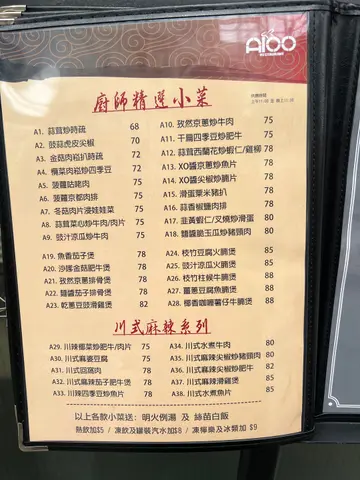 AIOO
RESTAURANT
廚師精選小菜
A1. 蒜茸炒時蔬 68
A2. 豉蒜虎皮尖椒 70
A3. 金菇肉崧扒時蔬 72
A4. 欖菜肉崧四季豆 72
A5. 菠蘿咕咾肉 75
A6. 菠蘿京都肉排 75
A7. 冬菇肉片浸娃娃菜 75
A8. 蒜茸菜心炒牛肉/肉片 75
A9. 豉汁涼瓜炒牛肉 75
A10. 孜然京蔥炒牛肉 75
A11. 干扁四季豆炒肥牛 75
A12. 蒜茸西蘭花炒蝦仁/雞柳 78
A13. XO醬京蔥炒魚片 78
A14. XO醬尖椒炒腩片 78
A15. 滑蛋粟米豬扒 78
A16. 蒜香椒鹽肉排 78
A17. 韭黃蝦仁/叉燒炒滑蛋 80
A18. 豉醬脆玉瓜炒豬頸肉 80
A19. 魚香茄子煲 78
A20. 沙嗲金菇肥牛煲 78
A21. 孜然京蔥排骨煲 78
A22. 麵醬茄子排骨煲 78
A23. 乾蔥豆豉滑雞煲 82
A24. 枝竹豆腐火腩煲 85
A25. 豉汁涼瓜火腩煲 85
A26. 枝竹柱候牛腩煲 88
A27. 薑蔥豆腐魚腩煲 88
A28. 椰香咖喱薯仔牛腩煲 88
川式麻辣系列
A29. 川辣椰菜炒肥牛/肉片 75
A30. 川式麻婆豆腐 75
A31. 川式回窩肉 78
A32. 川式麻辣茄子肥牛煲 78
A33. 川辣四季豆炒魚片 78
A34. 川式水煮牛肉 80
A35. 川式麻辣尖椒炒豬頸肉 80
A36. 川式麻辣尖椒炒肥牛 82
A37. 川式麻辣滑雞煲 85
A38. 川式水煮魚片 85
以上各款小菜送：明火例湯 及 絲苗白飯
熱飲加$5 / 凍飲及罐裝汽水加$8 / 凍檸樂及冰類加 $9